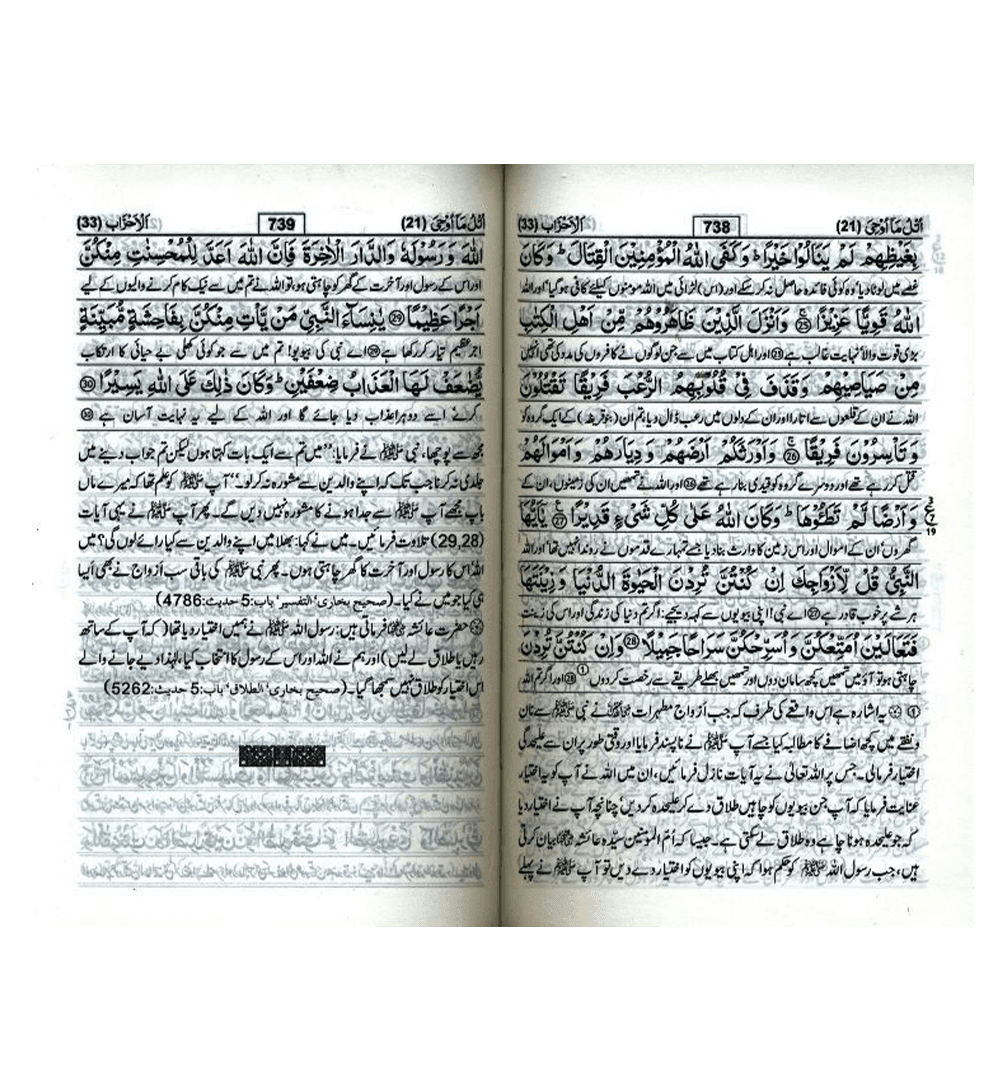 اُتْلُ مَآ اُوْحِیَ (21) 738 اَلْاَحْزَاب (33)
بِغَيْظِهِمْ لَمْ يَنَالُوْا خَيْرًا ؕ وَكَفَى اللّٰهُ الْمُؤْمِنِيْنَ الْقِتَالَ ؕ وَكَانَ
غصے میں لوٹا دیا‘ وہ کوئی فائدہ حاصل نہ کر سکے اور (اس) لڑائی میں اللہ مومنوں کیلئے کافی ہو گیا‘ اور اللہ
اللّٰهُ قَوِيًّا عَزِيْزًا ۚ (25) وَاَنْزَلَ الَّذِيْنَ ظَاهَرُوْهُمْ مِّنْ اَهْلِ الْكِتٰبِ
بڑی قوت والا‘ نہایت غالب ہے (25) اور اہل کتاب میں سے جن لوگوں نے کافروں کی مدد کی تھی انہیں
مِنْ صَيَاصِيْهِمْ وَقَذَفَ فِيْ قُلُوْبِهِمُ الرُّعْبَ فَرِيْقًا تَقْتُلُوْنَ
اللہ نے ان کے قلعوں سے اتارا اور ان کے دلوں میں رعب ڈال دیا، تم ان (بنوقریظہ) کے ایک گروہ کو
وَتَاْسِرُوْنَ فَرِيْقًا ۚ (26) وَاَوْرَثَكُمْ اَرْضَهُمْ وَدِيَارَهُمْ وَاَمْوَالَهُمْ
قتل کر رہے تھے اور دوسرے گروہ کو قیدی بنا رہے تھے (26) اور اللہ نے تمھیں ان کی زمینوں، ان کے
وَاَرْضًا لَّمْ تَطَـُٔوْهَا ؕ وَكَانَ اللّٰهُ عَلٰى كُلِّ شَيْءٍ قَدِيْرًا (27) يٰۤاَيُّهَا
گھروں‘ ان کے اموال اور اس زمین کا وارث بنا دیا جسے تمہارے قدموں نے روندا نہیں تھا‘ اور اللہ
النَّبِيُّ قُلْ لِّاَزْوَاجِكَ اِنْ كُنْتُنَّ تُرِدْنَ الْحَيٰوةَ الدُّنْيَا وَزِيْنَتَهَا
ہر شے پر خوب قادر ہے (27) اے نبی! اپنی بیویوں سے کہہ دیجیے: اگر تم دنیا کی زندگی اور اس کی زینت
فَتَعَالَيْنَ اُمَتِّعْكُنَّ وَاُسَرِّحْكُنَّ سَرَاحًا جَمِيْلًا (28) وَاِنْ كُنْتُنَّ تُرِدْنَ
چاہتی ہو تو آؤ میں تمھیں کچھ سامان دوں اور تمھیں بھلے طریقے سے رخصت کر دوں ① (28) اور اگر تم اللہ
① یہ اشارہ ہے اس واقعے کی طرف کہ جب ازواج مطہرات نے نبی ﷺ سے نان
و نفقے میں کچھ اضافے کا مطالبہ کیا جسے آپ ﷺ نے ناپسند فرمایا اور وقتی طور پر ان سے علیحدگی
اختیار فرمالی۔ جس پر اللہ تعالیٰ نے یہ آیات نازل فرمائیں، ان میں اللہ نے آپ کو یہ اختیار
عنایت فرمایا کہ آپ جن بیویوں کو چاہیں طلاق دے کر علیحدہ کر دیں‘ چنانچہ آپ نے اختیار دیا
کہ جو علیحدہ ہونا چاہے وہ طلاق لے سکتی ہے۔ جیسا کہ اُمّ المومنین سیّدہ عائشہ بیان کرتی
ہیں، جب رسول اللہ ﷺ کو حکم ہوا کہ اپنی بیویوں کو اختیار دے دیں تو آپ ﷺ نے پہلے
اُتْلُ مَآ اُوْحِیَ (21) 739 اَلْاَحْزَاب (33)
اللّٰهَ وَرَسُوْلَهٗ وَالدَّارَ الْاٰخِرَةَ فَاِنَّ اللّٰهَ اَعَدَّ لِلْمُحْسِنٰتِ مِنْكُنَّ
اور اس کے رسول اور آخرت کے گھر کو چاہتی ہو، تو اللہ نے تم میں سے نیک کام کرنے والیوں کے لیے
اَجْرًا عَظِيْمًا (29) يٰنِسَآءَ النَّبِيِّ مَنْ يَّاْتِ مِنْكُنَّ بِفَاحِشَةٍ مُّبَيِّنَةٍ
اجر عظیم تیار کر رکھا ہے (29) اے نبی کی بیویو! تم میں سے جو کوئی کھلی بے حیائی کا ارتکاب
يُّضٰعَفْ لَهَا الْعَذَابُ ضِعْفَيْنِ ؕ وَكَانَ ذٰلِكَ عَلَى اللّٰهِ يَسِيْرًا (30)
کرے اسے دوہرا عذاب دیا جائے گا اور اللہ کے لیے یہ نہایت آسان ہے (30)
مجھ سے پوچھا، نبی ﷺ نے فرمایا: ”میں تم سے ایک بات کہتا ہوں لیکن تم جواب دینے میں
جلدی نہ کرنا جب تک کہ اپنے والدین سے مشورہ نہ کر لو۔“ آپ ﷺ کو علم تھا کہ میرے ماں
باپ مجھے آپ ﷺ سے جدا ہونے کا مشورہ نہیں دیں گے۔ پھر آپ ﷺ نے یہی آیات
(29,28) تلاوت فرمائیں۔ میں نے کہا: بھلا میں اپنے والدین سے کیا رائے لوں گی؟ میں
اللہ‘ اس کا رسول اور آخرت کا گھر چاہتی ہوں۔ پھر نبی ﷺ کی باقی سب ازواج نے بھی ایسا
ہی کیا جو میں نے کیا۔ (صحیح بخاری‘ التفسیر‘ باب:5 حدیث:4786)
حضرت عائشہ فرماتی ہیں: رسول اللہ ﷺ نے ہمیں اختیار دیا تھا (کہ آپ کے ساتھ
رہیں یا طلاق لے لیں) اور ہم نے اللہ اور اس کے رسول کا انتخاب کیا، لہٰذا دیے جانے والے
اس اختیار کو طلاق نہیں سمجھا گیا۔ (صحیح بخاری‘ الطلاق‘ باب:5 حدیث:5262)